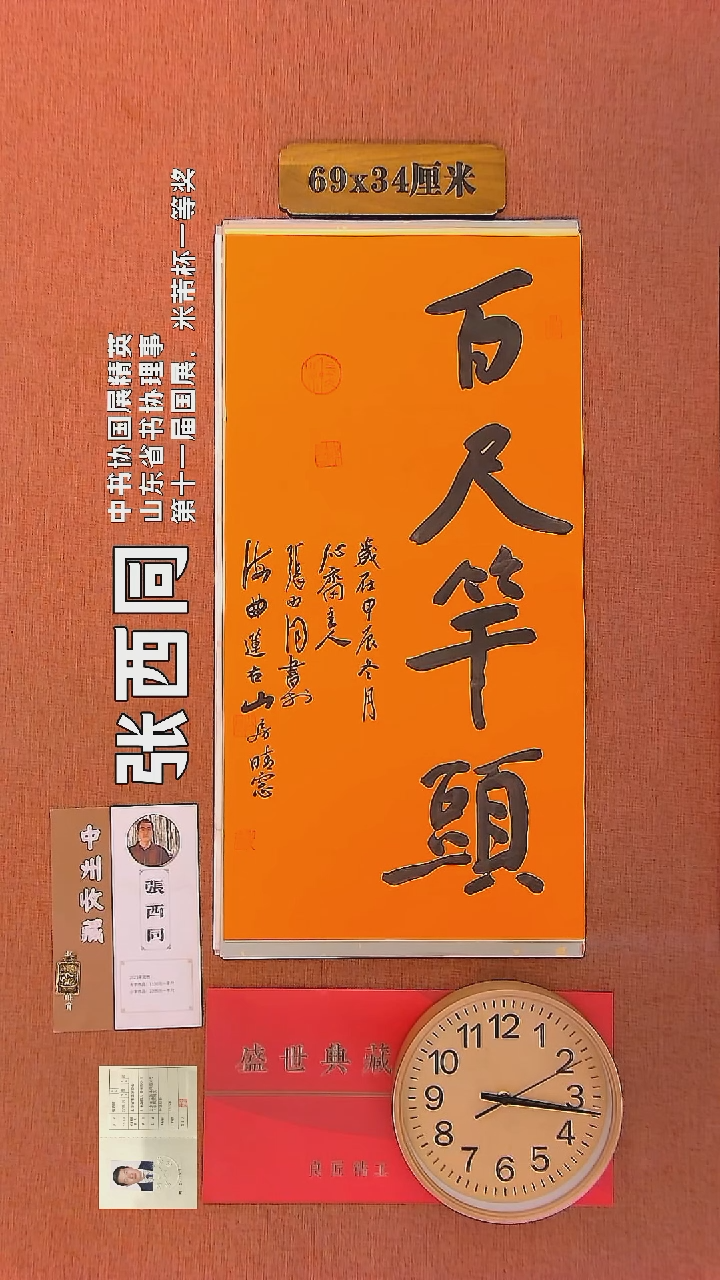 69x34厘米
百尺竿頭
歲在甲辰冬月
心齋主人
張西同書於
海曲蓮右山房晴窓
中书协国展精英
山东省书协理事
第十一届国展、米芾杯一等奖
张西同
張西同
盛世典藏
良匠精工
12
1
2
3
4
5
6
7
8
9
10
11